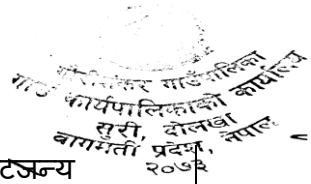 गौरीशंकर गाउँपालिका
गाउँ कार्यपालिकाको कार्यालय
सुरी, दोलखा
बागमती प्रदेश, नेपाल
२०७३
टजन्य